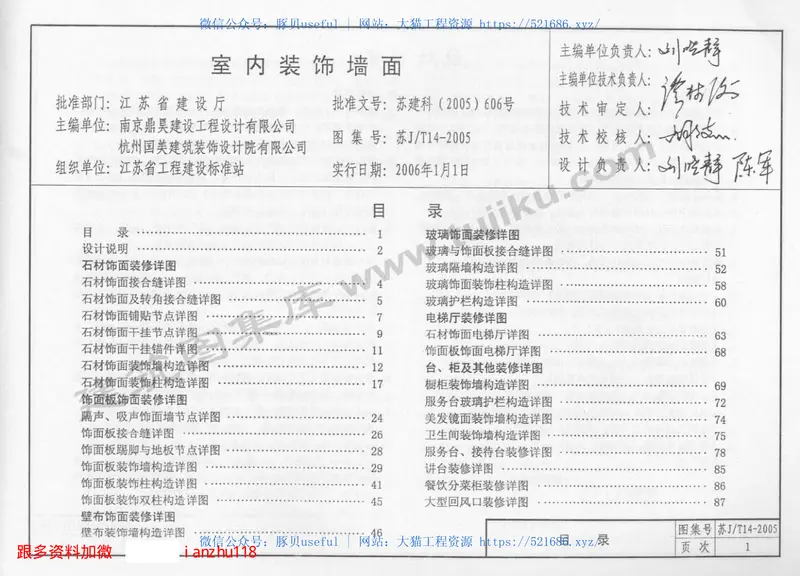 微信公众号：豚贝useful | 网站：大猫工程资源 https://521686.xyz/
室内装饰墙面
批准部门：江苏省建设厅
批准文号：苏建科（2005）606号
主编单位：南京鼎昊建设工程设计有限公司
杭州国美建筑装饰设计院有限公司
图集号：苏J/T14-2005
组织单位：江苏省工程建设标准站
实行日期：2006年1月1日
主编单位负责人：
主编单位技术负责人：
技术审定人：
技术校核人：
设计负责人：
目 录
目 录 1
设计说明 2
石材饰面装修详图
石材饰面接合缝详图 4
石材饰面及转角接合缝详图 5
石材饰面铺贴节点详图 7
石材饰面干挂节点详图 9
石材饰面干挂错件详图 11
石材饰面装饰墙构造详图 12
石材饰面装饰柱构造详图 17
饰面板饰面装修详图
隔声、吸声饰面墙节点详图 24
饰面板接合缝详图 26
饰面板踢脚与地板节点详图 28
饰面板装饰墙构造详图 29
饰面板装饰柱构造详图 41
饰面板装饰双柱构造详图 45
壁布饰面装修详图
壁布装饰墙构造详图 46
玻璃饰面装修详图
玻璃与饰面板接合缝详图 51
玻璃隔墙构造详图 52
玻璃饰面装饰柱构造详图 58
玻璃护栏构造详图 60
电梯厅装修详图
石材饰面电梯厅详图 63
饰面板饰面电梯厅详图 68
台、柜及其他装修详图
橱柜装饰墙构造详图 69
服务台玻璃护栏构造详图 72
美发镜面装饰墙构造详图 74
卫生间装饰墙构造详图 75
服务台、接待台装修详图 78
讲台装修详图 85
餐饮分菜柜装修详图 86
大型回风口装修详图 87
目 录
图集号 苏J/T14-2005
页 次 1
建筑图集库 www.kujiku.com
微信公众号：豚贝useful | 网站：大猫工程资源 https://521686.xyz/
跟多资料加微 ianzhu118